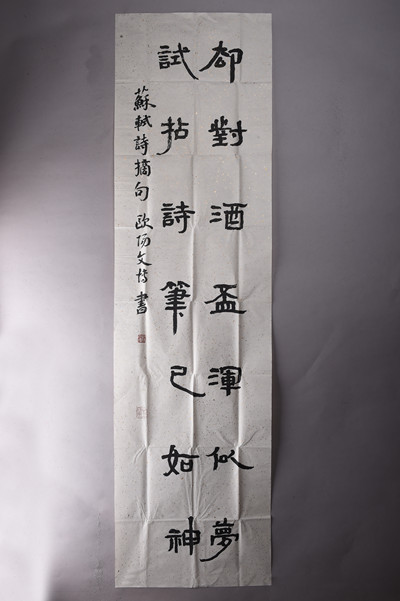 却對酒盃渾似夢
試拈詩筆已如神
蘇軾詩摘句 歐陽文博書